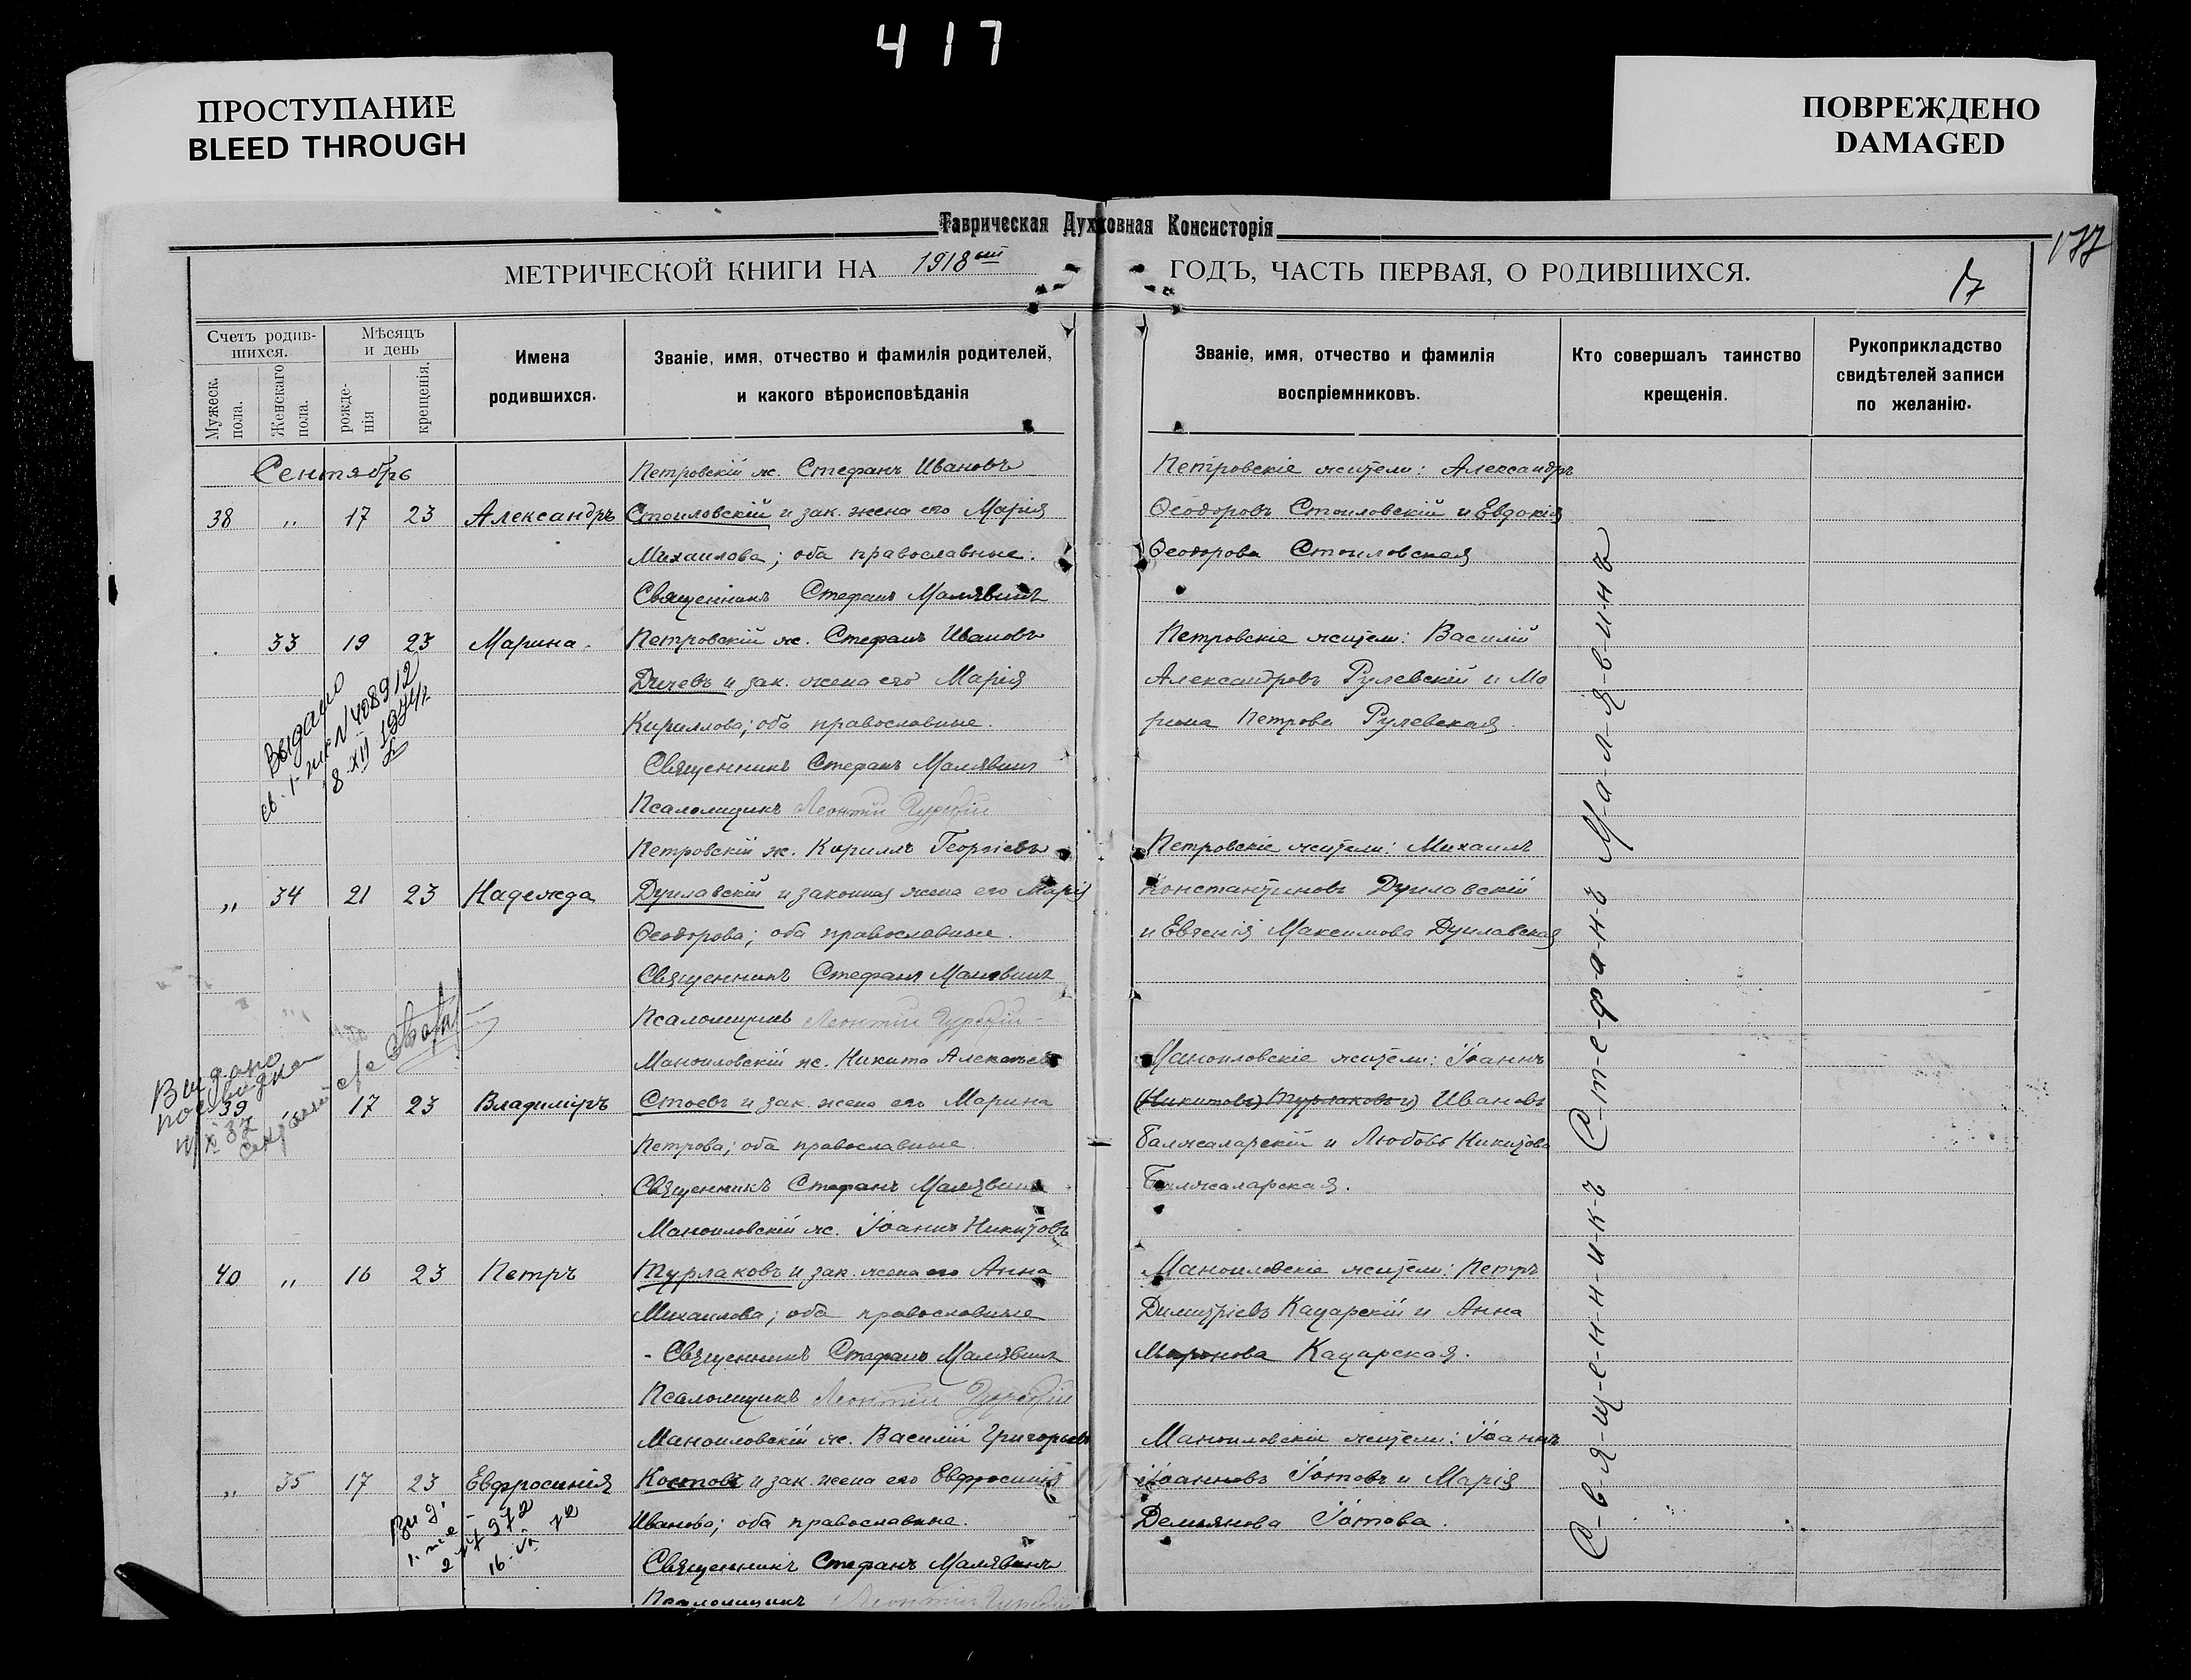 417
ПРОСТУПАНИЕ
BLEED THROUGH
ПОВРЕЖДЕНО
DAMAGED
Таврическая Духовная Консисторія
177
МЕТРИЧЕСКОЙ КНИГИ НА 1918 ый ГОДЪ, ЧАСТЬ ПЕРВАЯ, О РОДИВШИХСЯ.
17
Счетъ родив-
шихся.
Мужеск. пола.
Женскаго пола.
Мѣсяцъ
и день
рожде-
нія
крещенія.
Имена
родившихся.
Званіе, имя, отчество и фамилія родителей,
и какого вѣроисповѣданія
Званіе, имя, отчество и фамилія
воспріемниковъ.
Кто совершалъ таинство
крещенія.
Рукоприкладство
свидѣтелей записи
по желанію.
Сентябрь
Петровскій ж. Стефанъ Ивановъ
38 " 17 23 Александръ Стоиловскій и зак. жена его Марія
Михаилова; оба православные.
Священникъ Стефанъ Малявинъ
Петровскіе жители: Александръ
Ѳеодоровъ Стоиловскій и Евдокія
Ѳеодорова Стоиловская
33 19 23 Марина. Петровскій ж. Стефанъ Ивановъ
Дичевъ и зак. жена его Марія
Кириллова; оба православные.
Священникъ Стефанъ Малявинъ
Псаломщикъ Леонтій
Петровскіе жители: Василій
Александровъ Рулевскій и Ма
рина Петрова Рулевская.
Выдано
св. 1- N 408912
8 XII 1974
Петровскій ж. Кириллъ Георгіевъ
" 34 21 23 Надежда Дуилавскій и законная жена его Марія
Ѳеодорова; оба православные.
Священникъ Стефанъ Малявинъ
Псаломщикъ Леонтій
Петровскіе жители: Михаилъ
Константиновъ Дуилавскій
и Евгенія Максимова Дуилавская
Маноиловскій ж. Никита Алексѣевъ
39 " 17 23 Владиміръ Стоевъ и зак. жена его Марина
Петрова; оба православные
Священникъ Стефанъ Малявинъ
Маноиловскіе жители: Іоаннъ
(Никитовъ) Турлаковъ и) Ивановъ
Балжаларскій и Любовь Никитова
Балжаларская.
Видано
Маноиловскій ж. Іоаннъ Никитовъ
40 " 16 23 Петръ Турлаковъ и зак. жена его Анна
Михаилова; оба православные
- Священникъ Стефанъ Малявинъ
Псаломщикъ Леонтій
Маноиловскіе жители: Петръ
Димитріевъ Кацарскій и Анна
Миронова Кацарская.
Маноиловскій ж. Василій Григорьевъ
" 35 17 23 Евфросинія Костовъ и зак. жена его Евфросинія
Иванова; оба православные.
Священникъ Стефанъ Малявинъ
Псаломщикъ Леонтій
Маноиловскіе жители: Іоаннъ
Іоанновъ Іотовъ и Марія
Демьянова Іотова.
С-в-я-щ-е-н-н-и-к-ъ С-т-е-ф-а-н-ъ М-а-л-я-в-и-н-ъ